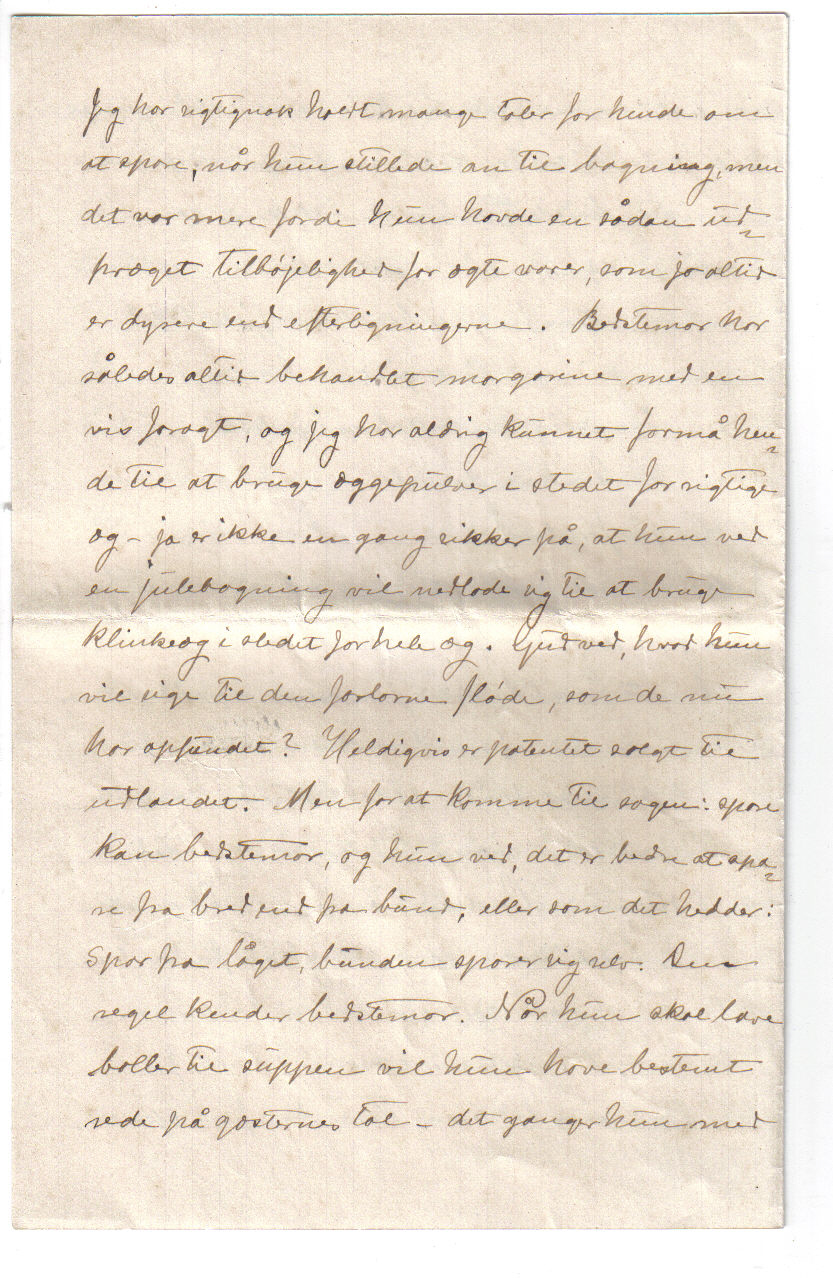 Jeg har rigtignok holdt mange taler for hende om
at spare, når hun stillede an til bagning, men
det var mere fordi hun havde en sådan ud-
præget tilbøjelighed for ægte varer, som jo altid
er dyrere end efterligningerne. Bedstemor har
således altid behandlet margarine med en
vis foragt, og jeg har aldrig kunnet formå hen-
de til at bruge æggepulver i stedet for rigtige
æg - ja er ikke en gang sikker på, at hun ved
en julebagning vil nedlade sig til at bruge
klinkeæg i stedet for hele æg. Gud ved, hvad hun
vil sige til den forlorne fløde, som de nu
har opfundet? Heldigvis er patentet solgt til
udlandet. Men for at komme til sagen: spare
kan bedstemor, og hun ved, det er bedre at spa-
re fra bred end fra bund, eller som det hedder:
Spar fra låget, bunden sparer sig selv. Den
regel kender bedstemor. Når hun skal lave
boller til suppen vil hun have bestemt
rede på gæsternes tal - det ganger hun med